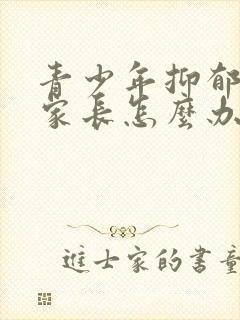 青少年抑郁
家長怎麼办
進士家的書童